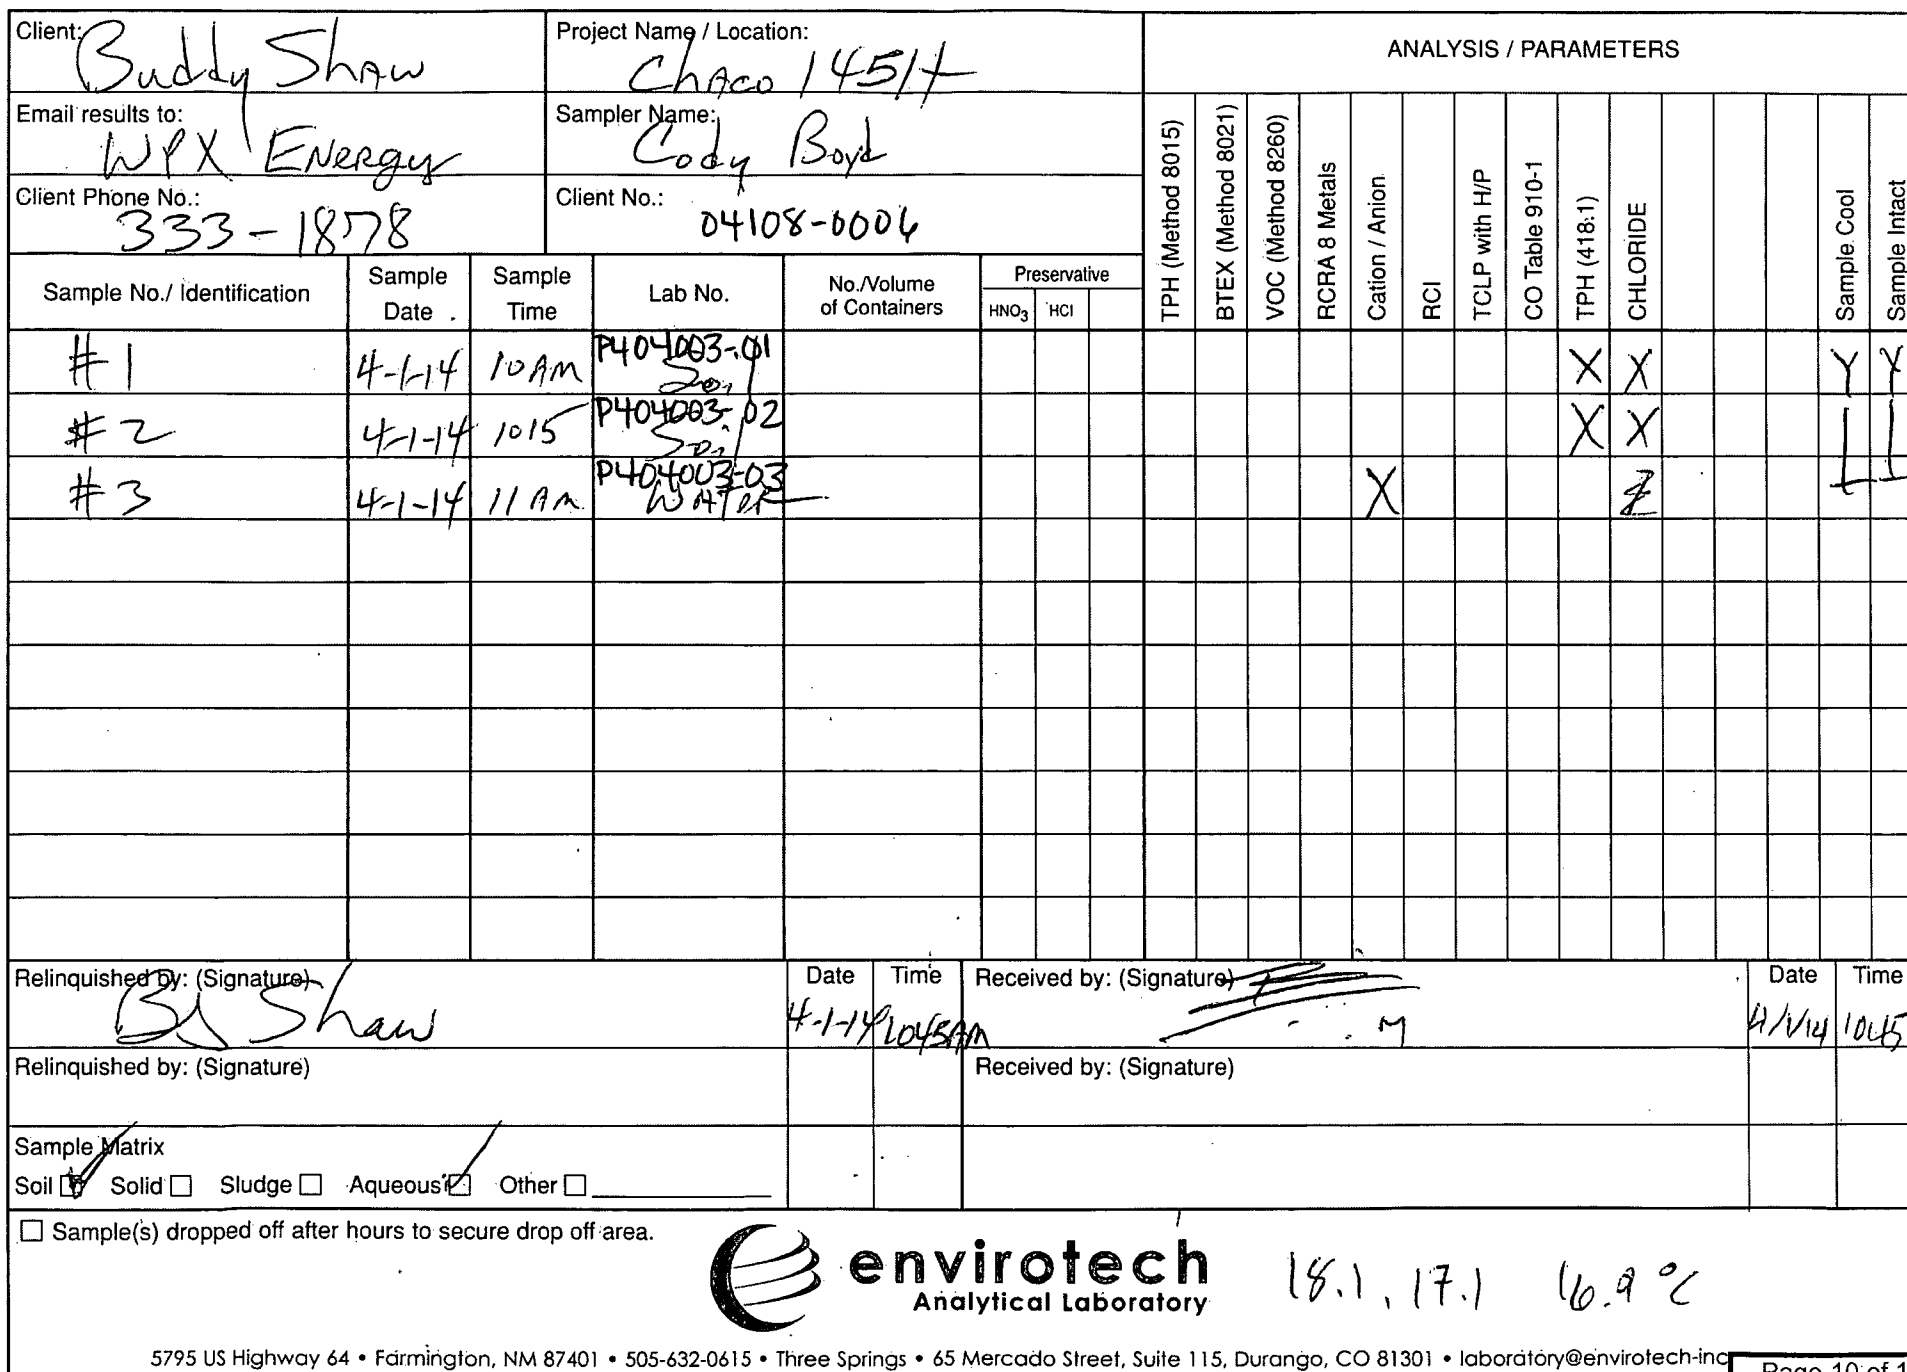 Client: Buddy Shaw
Project Name / Location: Chaco 145H
ANALYSIS / PARAMETERS
Email results to: WPX Energy
Sampler Name: Cody Boyd
Client Phone No.: 333-1878
Client No.: 04108-0006
Sample No./ Identification
Sample Date
Sample Time
Lab No.
No./Volume of Containers
Preservative
HNO3
HCl
TPH (Method 8015)
BTEX (Method 8021)
VOC (Method 8260)
RCRA 8 Metals
Cation / Anion
RCI
TCLP with H/P
CO Table 910-1
TPH (418.1)
CHLORIDE
Sample Cool
Sample Intact
#1 4-1-14 10 AM P404003-01 X X Y Y
Soil
#2 4-1-14 1015 P404003-02 X X
Soil
#3 4-1-14 11 AM P404003-03 X
Water
Relinquished by: (Signature) BJ Shaw
Date 4-1-14
Time 1045 AM
Received by: (Signature)
Date 4/1/14
Time 1045
Relinquished by: (Signature)
Received by: (Signature)
Sample Matrix
Soil Solid Sludge Aqueous Other
Sample(s) dropped off after hours to secure drop off area.
envirotech
Analytical Laboratory
18.1, 17.1 16.9 °C
5795 US Highway 64 • Farmington, NM 87401 • 505-632-0615 • Three Springs • 65 Mercado Street, Suite 115, Durango, CO 81301 • laboratory@envirotech-inc
Page 10 of 1